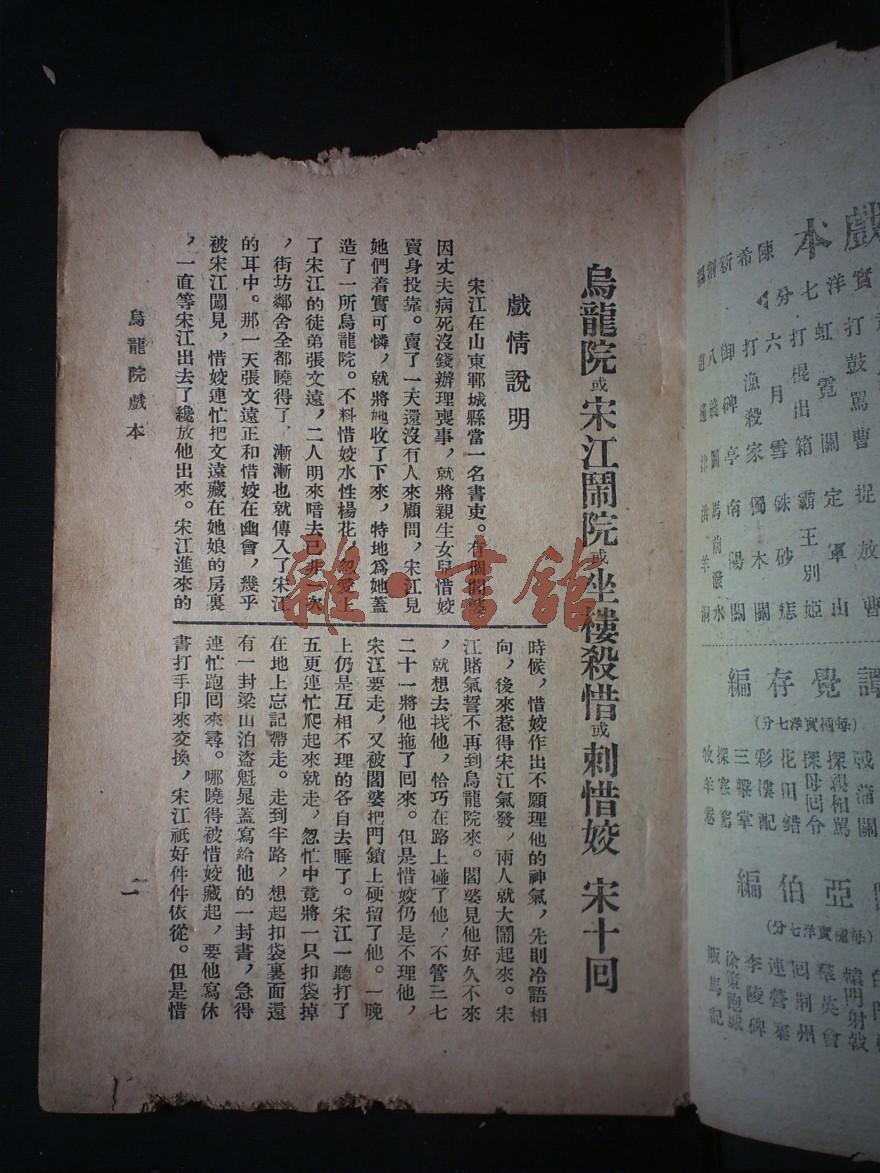 烏龍院或宋江鬧院或坐樓殺惜或刺惜姣 宋十回
戲情說明
宋江在山東鄆城縣當一名書吏。有個閻婆
因丈夫病死沒錢辦理喪事，就將親生女兒惜姣
賣身投靠。賣了一天還沒有人來顧問，宋江見
她們着實可憐，就將她收了下來，特地爲她蓋
造了一所烏龍院。不料惜姣水性楊花，忽愛上
了宋江的徒弟張文遠，二人明來暗去已非一次
，街坊鄰舍全都曉得了，漸漸也就傳入了宋江
的耳中。那一天張文遠正和惜姣在幽會，幾乎
被宋江闖見，惜姣連忙把文遠藏在她娘的房裏
，一直等宋江出去了纔放他出來。宋江進來的
時候，惜姣作出不願理他的神氣，先則冷語相
向，後來惹得宋江氣發，兩人就大鬧起來。宋
江賭氣誓不再到烏龍院來。閻婆見他好久不來
，就想去找他，恰巧在路上碰了他，不管三七
二十一將他拖了回來。但是惜姣仍是不理他，
宋江要走，又被閻婆把門鎖上硬留了他。一晚
上仍是互相不理的各自去睡了。宋江一聽打了
五更連忙爬起來就走，忽忙中竟將一只扣袋掉
在地上忘記帶走。走到半路，想起扣袋裏面還
有一封梁山泊盜魁晁蓋寫給他的一封書，急得
連忙跑回來尋。哪曉得被惜姣藏起，要他寫休
書打手印來交換，宋江祇好件件依從。但是惜
烏龍院戲本
二
雜·書館
戲本
陳希新
實洋七分
打鼓罵曹
虹霓關
打棍出箱
六月雪
打漁殺家
御碑亭
八義圖
捉放曹
定軍山
霸王別姬
硃砂痣
獨木關
南陽關
馬前潑水
洪羊洞
譚覺存編
(每種實洋七分)
戰蒲關
探親相罵
探母回令
花田錯
彩樓配
三擊掌
探寒窰
牧羊卷
亞伯編
(每種實洋七分)
轅門射戟
羣英會
回荆州
連營寨
李陵碑
徐策跑城
販馬記